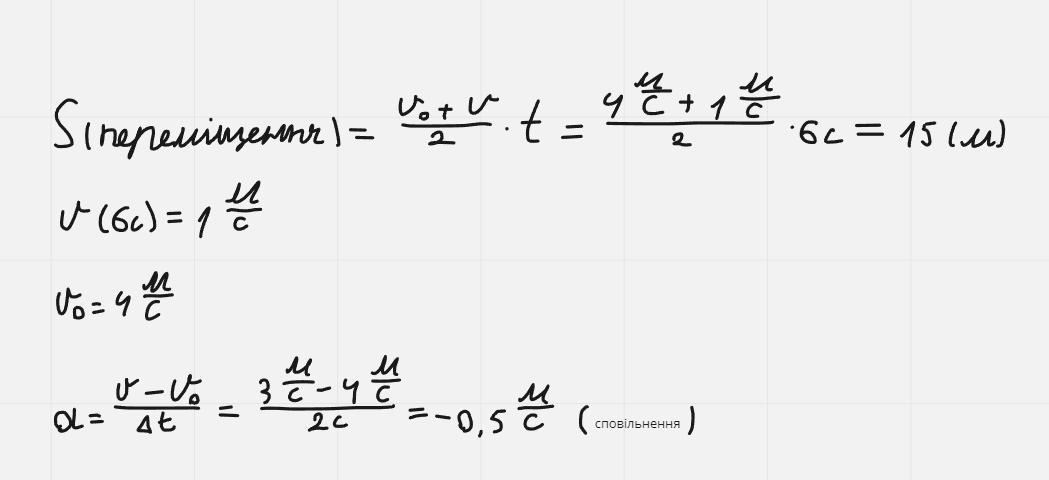 S(переміщення) = (v₀ + v)/2 · t = (4 м/с + 1 м/с)/2 · 6с = 15 (м)
v(6с) = 1 м/с
v₀ = 4 м/с
a = (v - v₀)/Δt = (3 м/с - 4 м/с)/2с = -0,5 м/с (сповільнення)